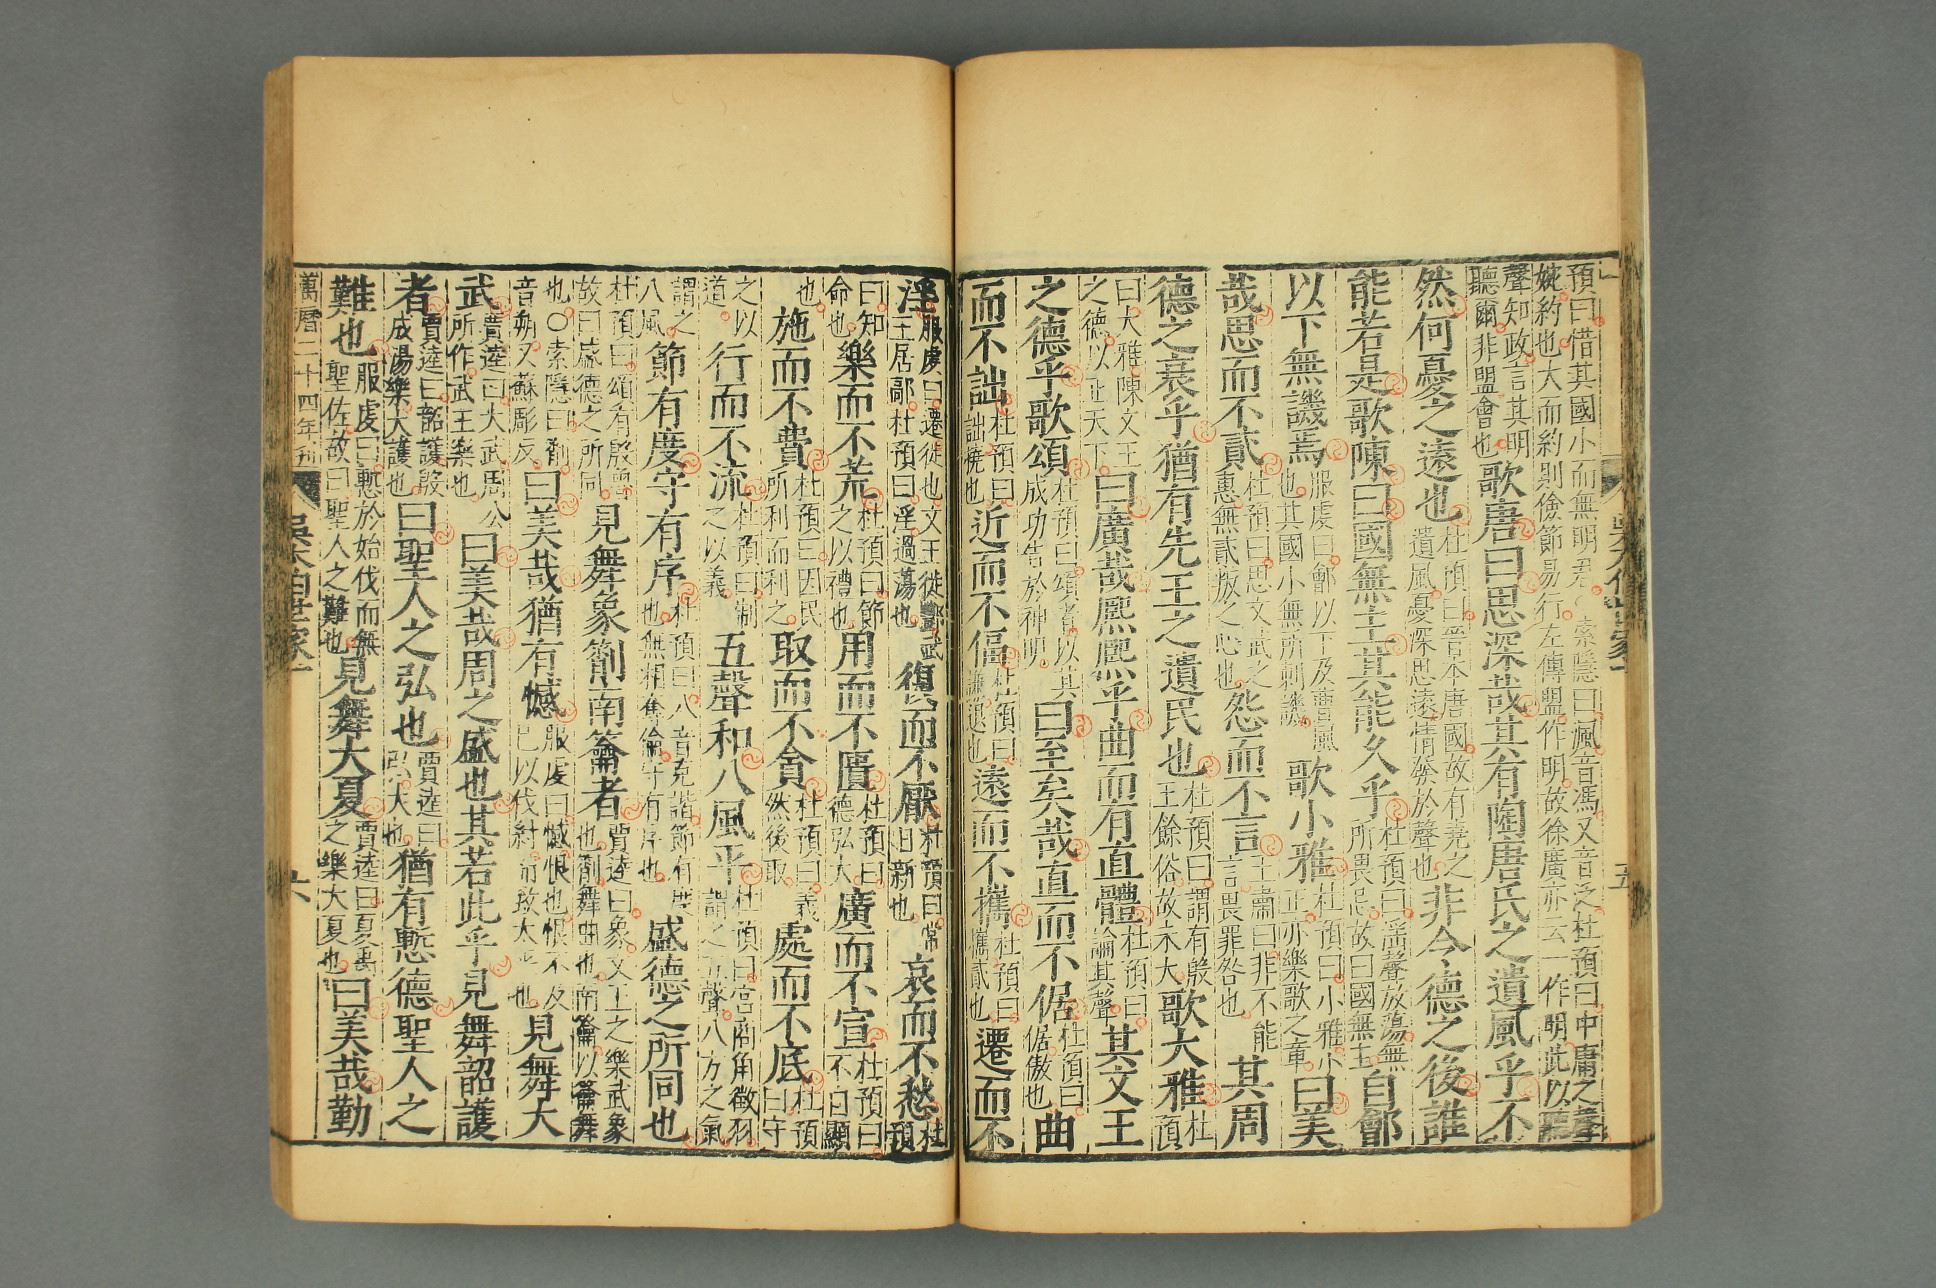 吳太伯世家一 五
預曰惜其國小而無明君索隱曰渢音馮又音泛杜預曰中庸之聲婉約也大而約則儉節易行左傳盟作明故徐廣亦云一作明此以聽
聲知政言其明聽爾非盟會也歌唐曰思深哉其有陶唐氏之遺風乎不
然何憂之遠也杜預曰晉本唐國故有堯之遺風憂深思遠情發於聲也非令德之後誰
能若是歌陳曰國無主其能久乎杜預曰淫聲放蕩無所畏忌故曰國無主自鄶
以下無譏焉服虔曰鄶以下及曹風也其國小無所刺譏歌小雅杜預曰小雅小正亦樂歌之章曰美
哉思而不貳杜預曰思文武之悳無貳叛之心也怨而不言王肅曰非不能言畏罪咎也其周
德之衰乎猶有先王之遺民也杜預曰謂有殷王餘俗故未大歌大雅杜預
曰大雅陳文王之德以正天下曰廣哉熙熙乎曲而有直體杜預曰論其聲其文王
之德乎歌頌杜預曰頌者以其成功告於神明曰至矣哉直而不倨杜預曰倨傲也曲
而不詘杜預曰詘撓也近而不偪杜預曰謙退也遠而不攜杜預曰攜貳也遷而不
淫服虔曰遷徙也文王徙酆武王居鄗杜預曰淫過蕩也復而不厭杜預曰常日新也哀而不愁杜預
曰知命也樂而不荒杜預曰節之以禮也用而不匱杜預曰德弘大廣而不宣杜預曰不自顯
也施而不費杜預曰因民所利而利之取而不貪杜預曰義然後取處而不底杜預曰守
之以道行而不流杜預曰制之以義五聲和八風平杜預曰宮商角徵羽謂之五聲八方之氣
謂之八風節有度守有序杜預曰八音克諧節有度也無相奪倫守有序也盛德之所同也
杜預曰頌有殷魯故曰盛德之所同見舞象箾南籥者賈逵曰象文王之樂武象也箾舞曲也南籥以籥舞
也○索隱曰箾音朔又蘇彫反曰美哉猶有憾服虔曰憾恨也恨不及已以伐紂而致太平也見舞大
武賈逵曰大武周公所作武王樂也曰美哉周之盛也其若此乎見舞韶護
者賈逵曰韶護殷成湯樂大護也曰聖人之弘也賈逵曰弘大也猶有慙德聖人之
難也服虔曰慙於始伐而無聖佐故曰聖人之難也見舞大夏賈逵曰夏禹之樂大夏也曰美哉勤
萬曆二十四年刊 吳太伯世家一 六